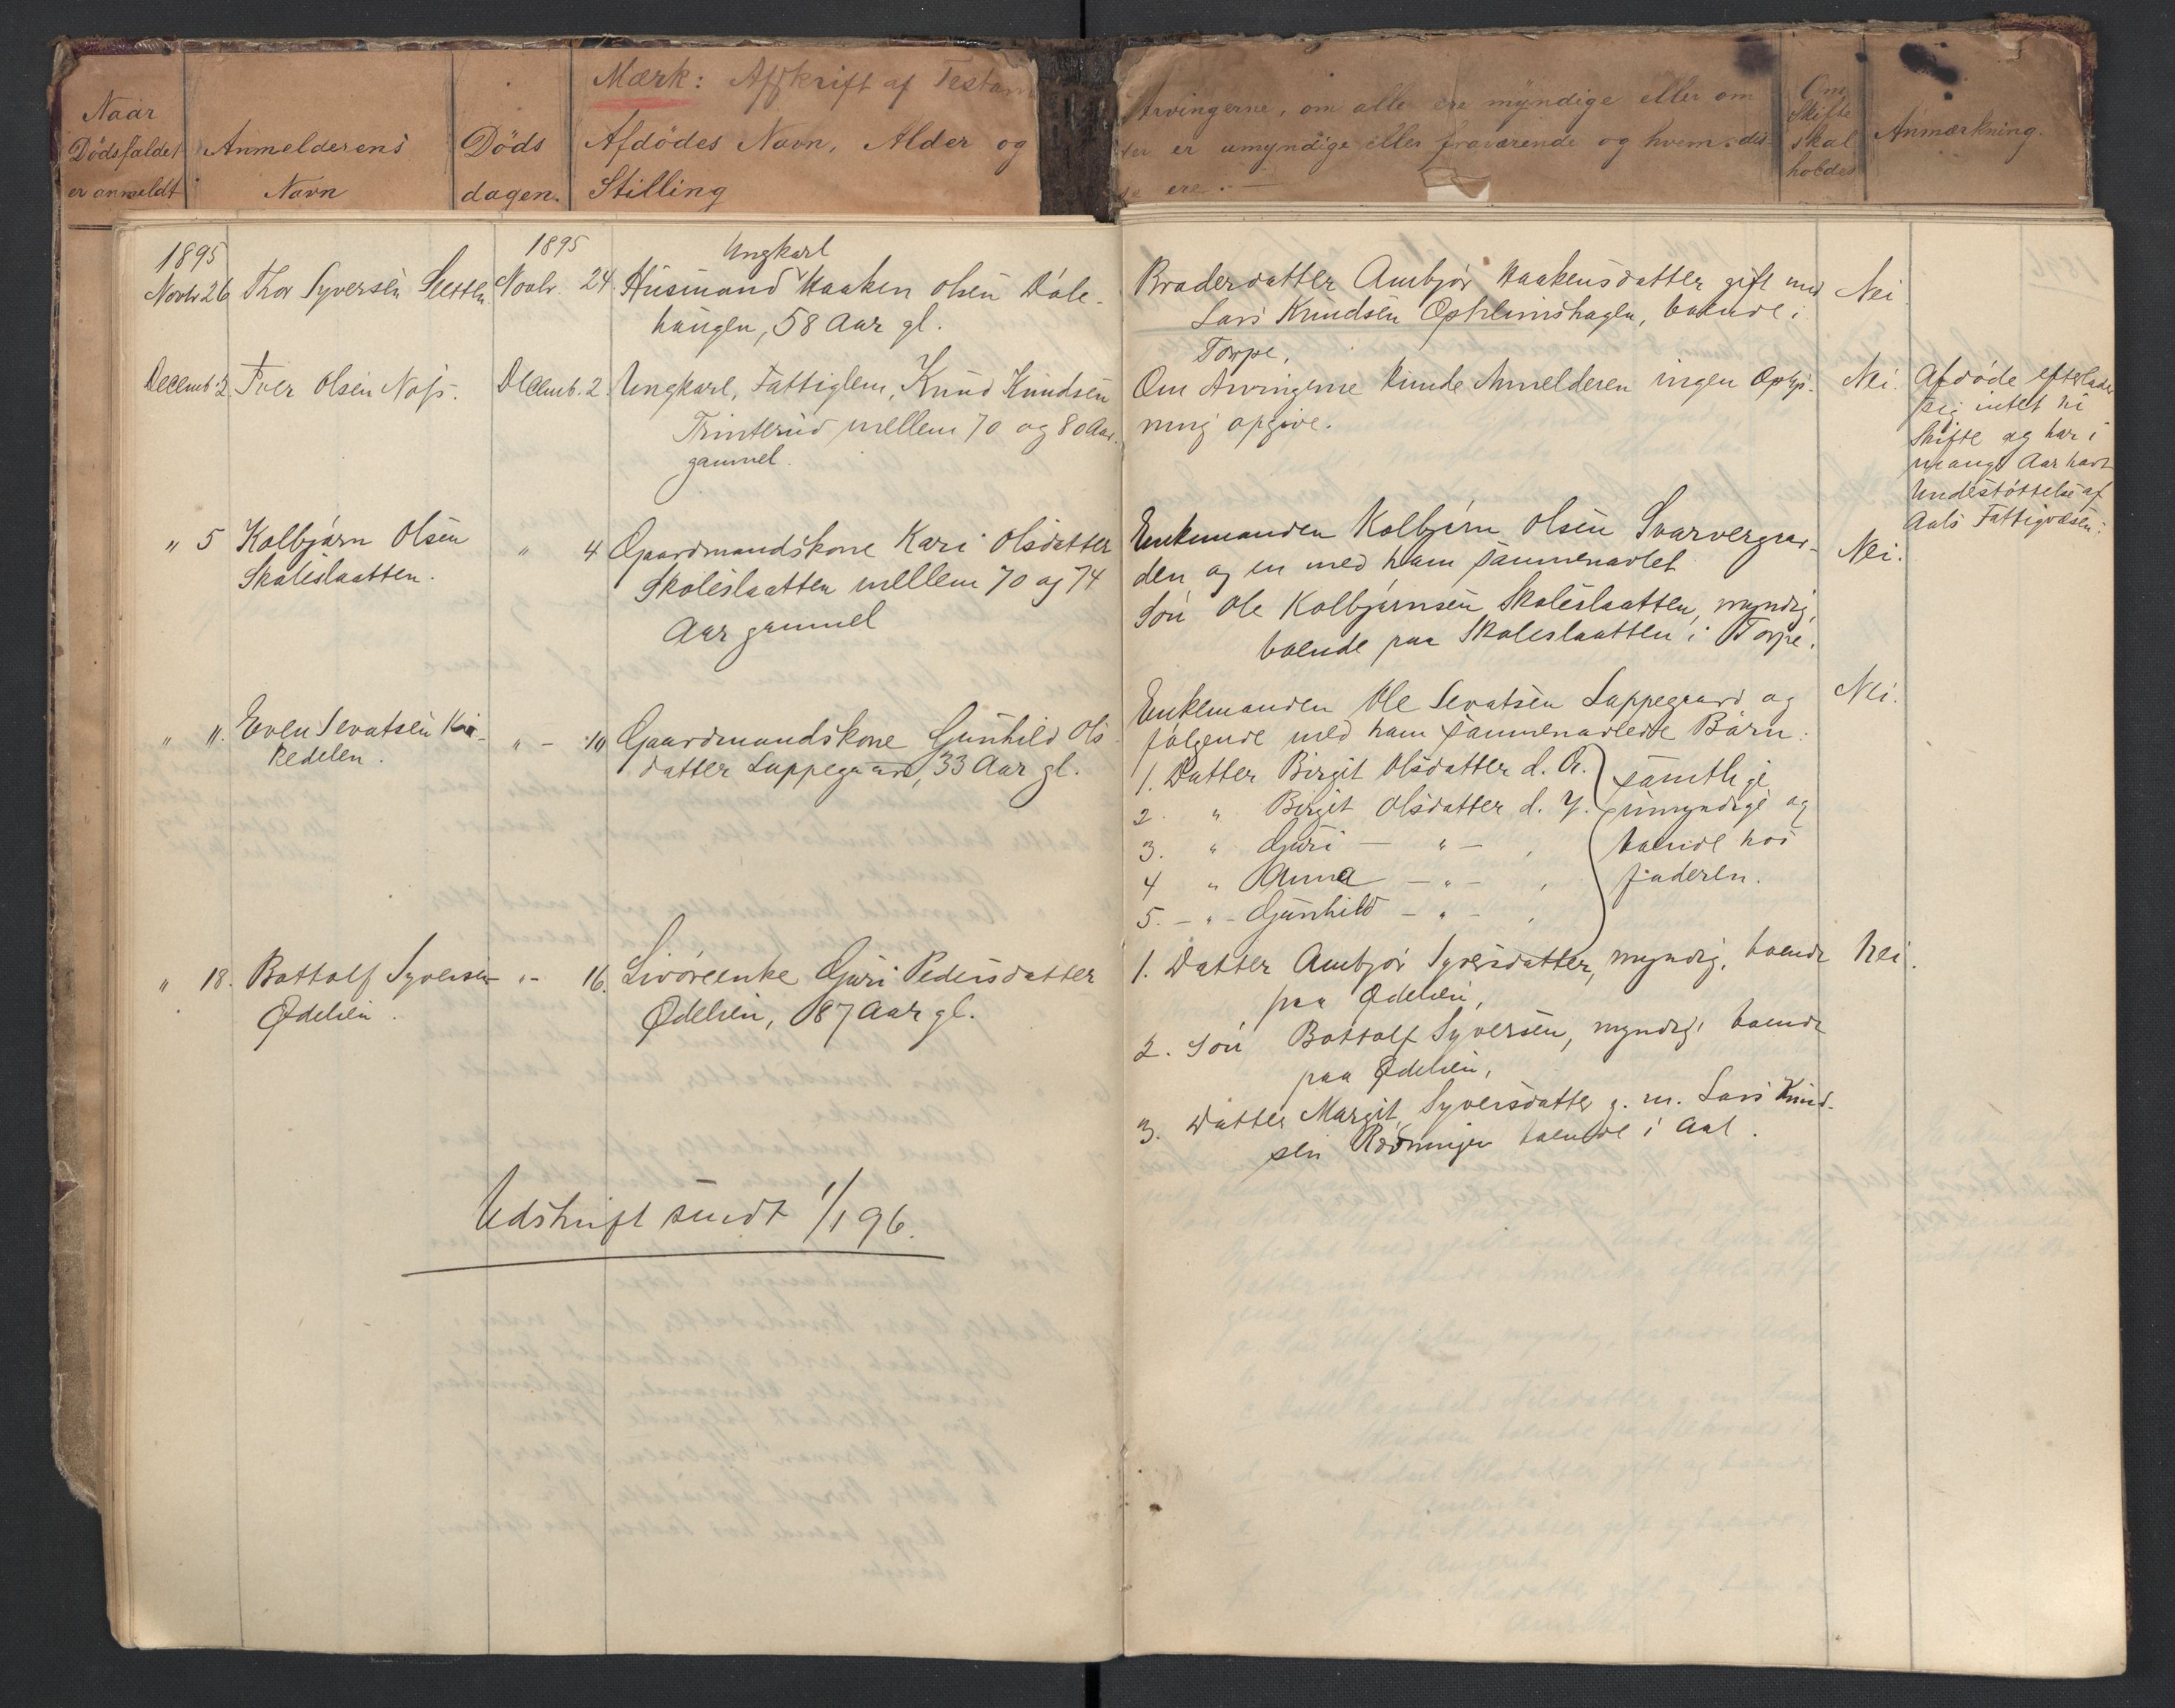 Naar
Dödsfaldet
er anmeldt
Anmelderens
Navn
Döds
dagen.
Mærk: Afskrift af Testam
Afdödes Navn, Alder og
Stilling
Arvingerne, om alle ere myndige eller om
er umyndige eller fraværende og hvem dis-
se ere. —
Om
Skifte
skal
holdes
Anmærkning.
1895
Novbr 26
Thor Syversen
1895
Novbr. 24
Ungkarl
Husmand Haaken Olsen Dale-
haugen, 58 Aar gl.
Broderdatter Ambjør Haakensdatter gift med
Lars Knudsen Opheimshagen, boende i
Torpe.
Nei
Decemb. 2.
Iver Olsen Næss.
Decemb. 2.
Ungkarl, Fattiglem, Knud Knudsen
Trinterud mellem 70 og 80 Aar
gammel.
Om Arvingerne kunde Anmelderen ingen Oplys-
ning opgive.
Nei.
Afdøde efterlader
sig intet til
Skifte og har i
mange Aar havt
Understøttelse af
Aals Fattigvæsen.
" 5
Kolbjørn Olsen
Skoleslaatten.
" 4
Gaardmandskone Kari Olsdatter
Skoleslaatten mellem 70 og 74
Aar gammel
Enkemanden Kolbjørn Olsen Svarvergaar-
den og en med ham sammenavlet
Søn Ole Kolbjørnsen Skoleslaatten, myndig,
boende paa Skoleslaatten i Torpe.
Nei.
" 11.
Even Sevatsen
" — 10
Gaardmandskone Gunhild Ols-
datter Lappegaard, 33 Aar gl.
Enkemanden Ole Sevatsen Lappegaard og
følgende med ham sammenavlede Børn:
1. Datter Birgit Olsdatter d. Æ.
2. " Birgit Olsdatter d. Y.
3. " Guri — " —
4 " Anna — " —
5. — " — Gunhild — " —
samtlige
umyndige og
boende hos
faderen.
Nei.
" 18.
Bottolf Syversen
Ødelien.
" — 16.
Livøreenke Guri Pedersdatter
Ødelien, 87 Aar gl.
1. Datter Ambjør Syversdatter, myndig, boende
paa Ødelien,
2. Søn Bottolf Syversen, myndig, boende
paa Ødelien,
3. Datter Margit Syversdatter g. m. Lars Knud-
sen Rødningen boende i Aal.
Nei.
Udskrift sendt 1/1 96.